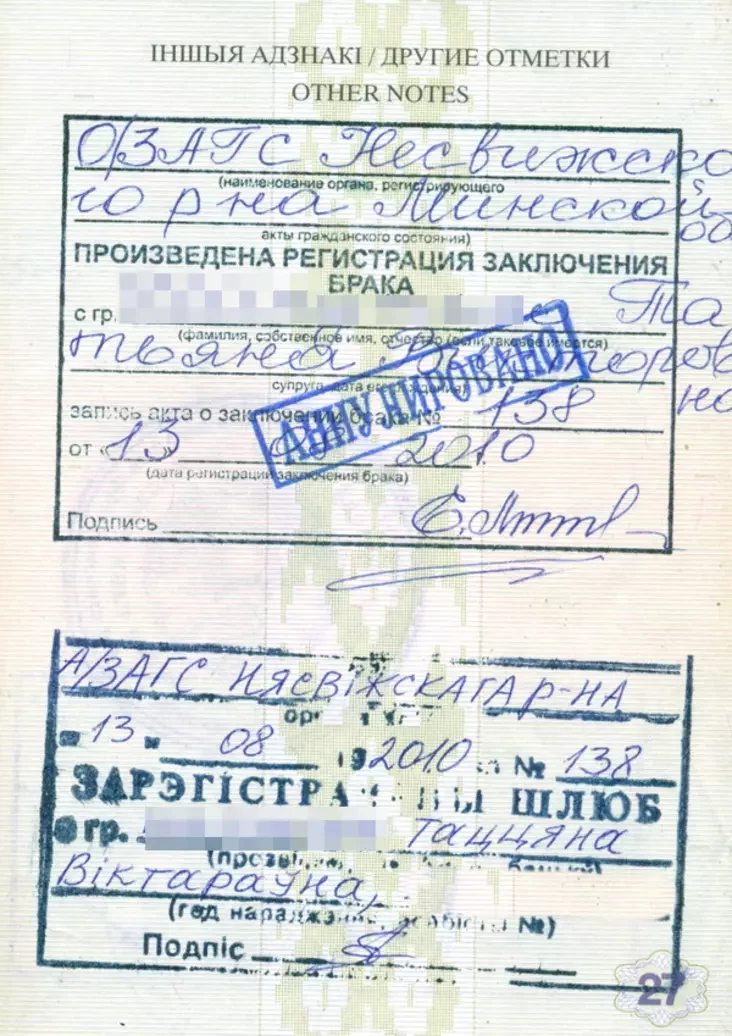 ІНШЫЯ АДЗНАКІ / ДРУГИЕ ОТМЕТКИ
OTHER NOTES
О/ЗАГС Несвижско
(наименование органа, регистрирующего
го р-на Минской об
акты гражданского состояния)
ПРОИЗВЕДЕНА РЕГИСТРАЦИЯ ЗАКЛЮЧЕНИЯ
БРАКА
с гр. Та
(фамилия, собственное имя, отчество (если таковое имеется)
тьяна Викторов
но
супруга, дата его рождения)
запись акта о заключении брака № 138
АННУЛИРОВАНО
от «13 2010
(дата регистрации заключения брака)
Подпись
А/ЗАГС НЯСВІЖСКАГА Р-НА
" 13 " 08 192010 № 138
ШЛЮБ
гр. Таццяна
Віктараўна,
(год нараджэння, №)
Подпіс
27